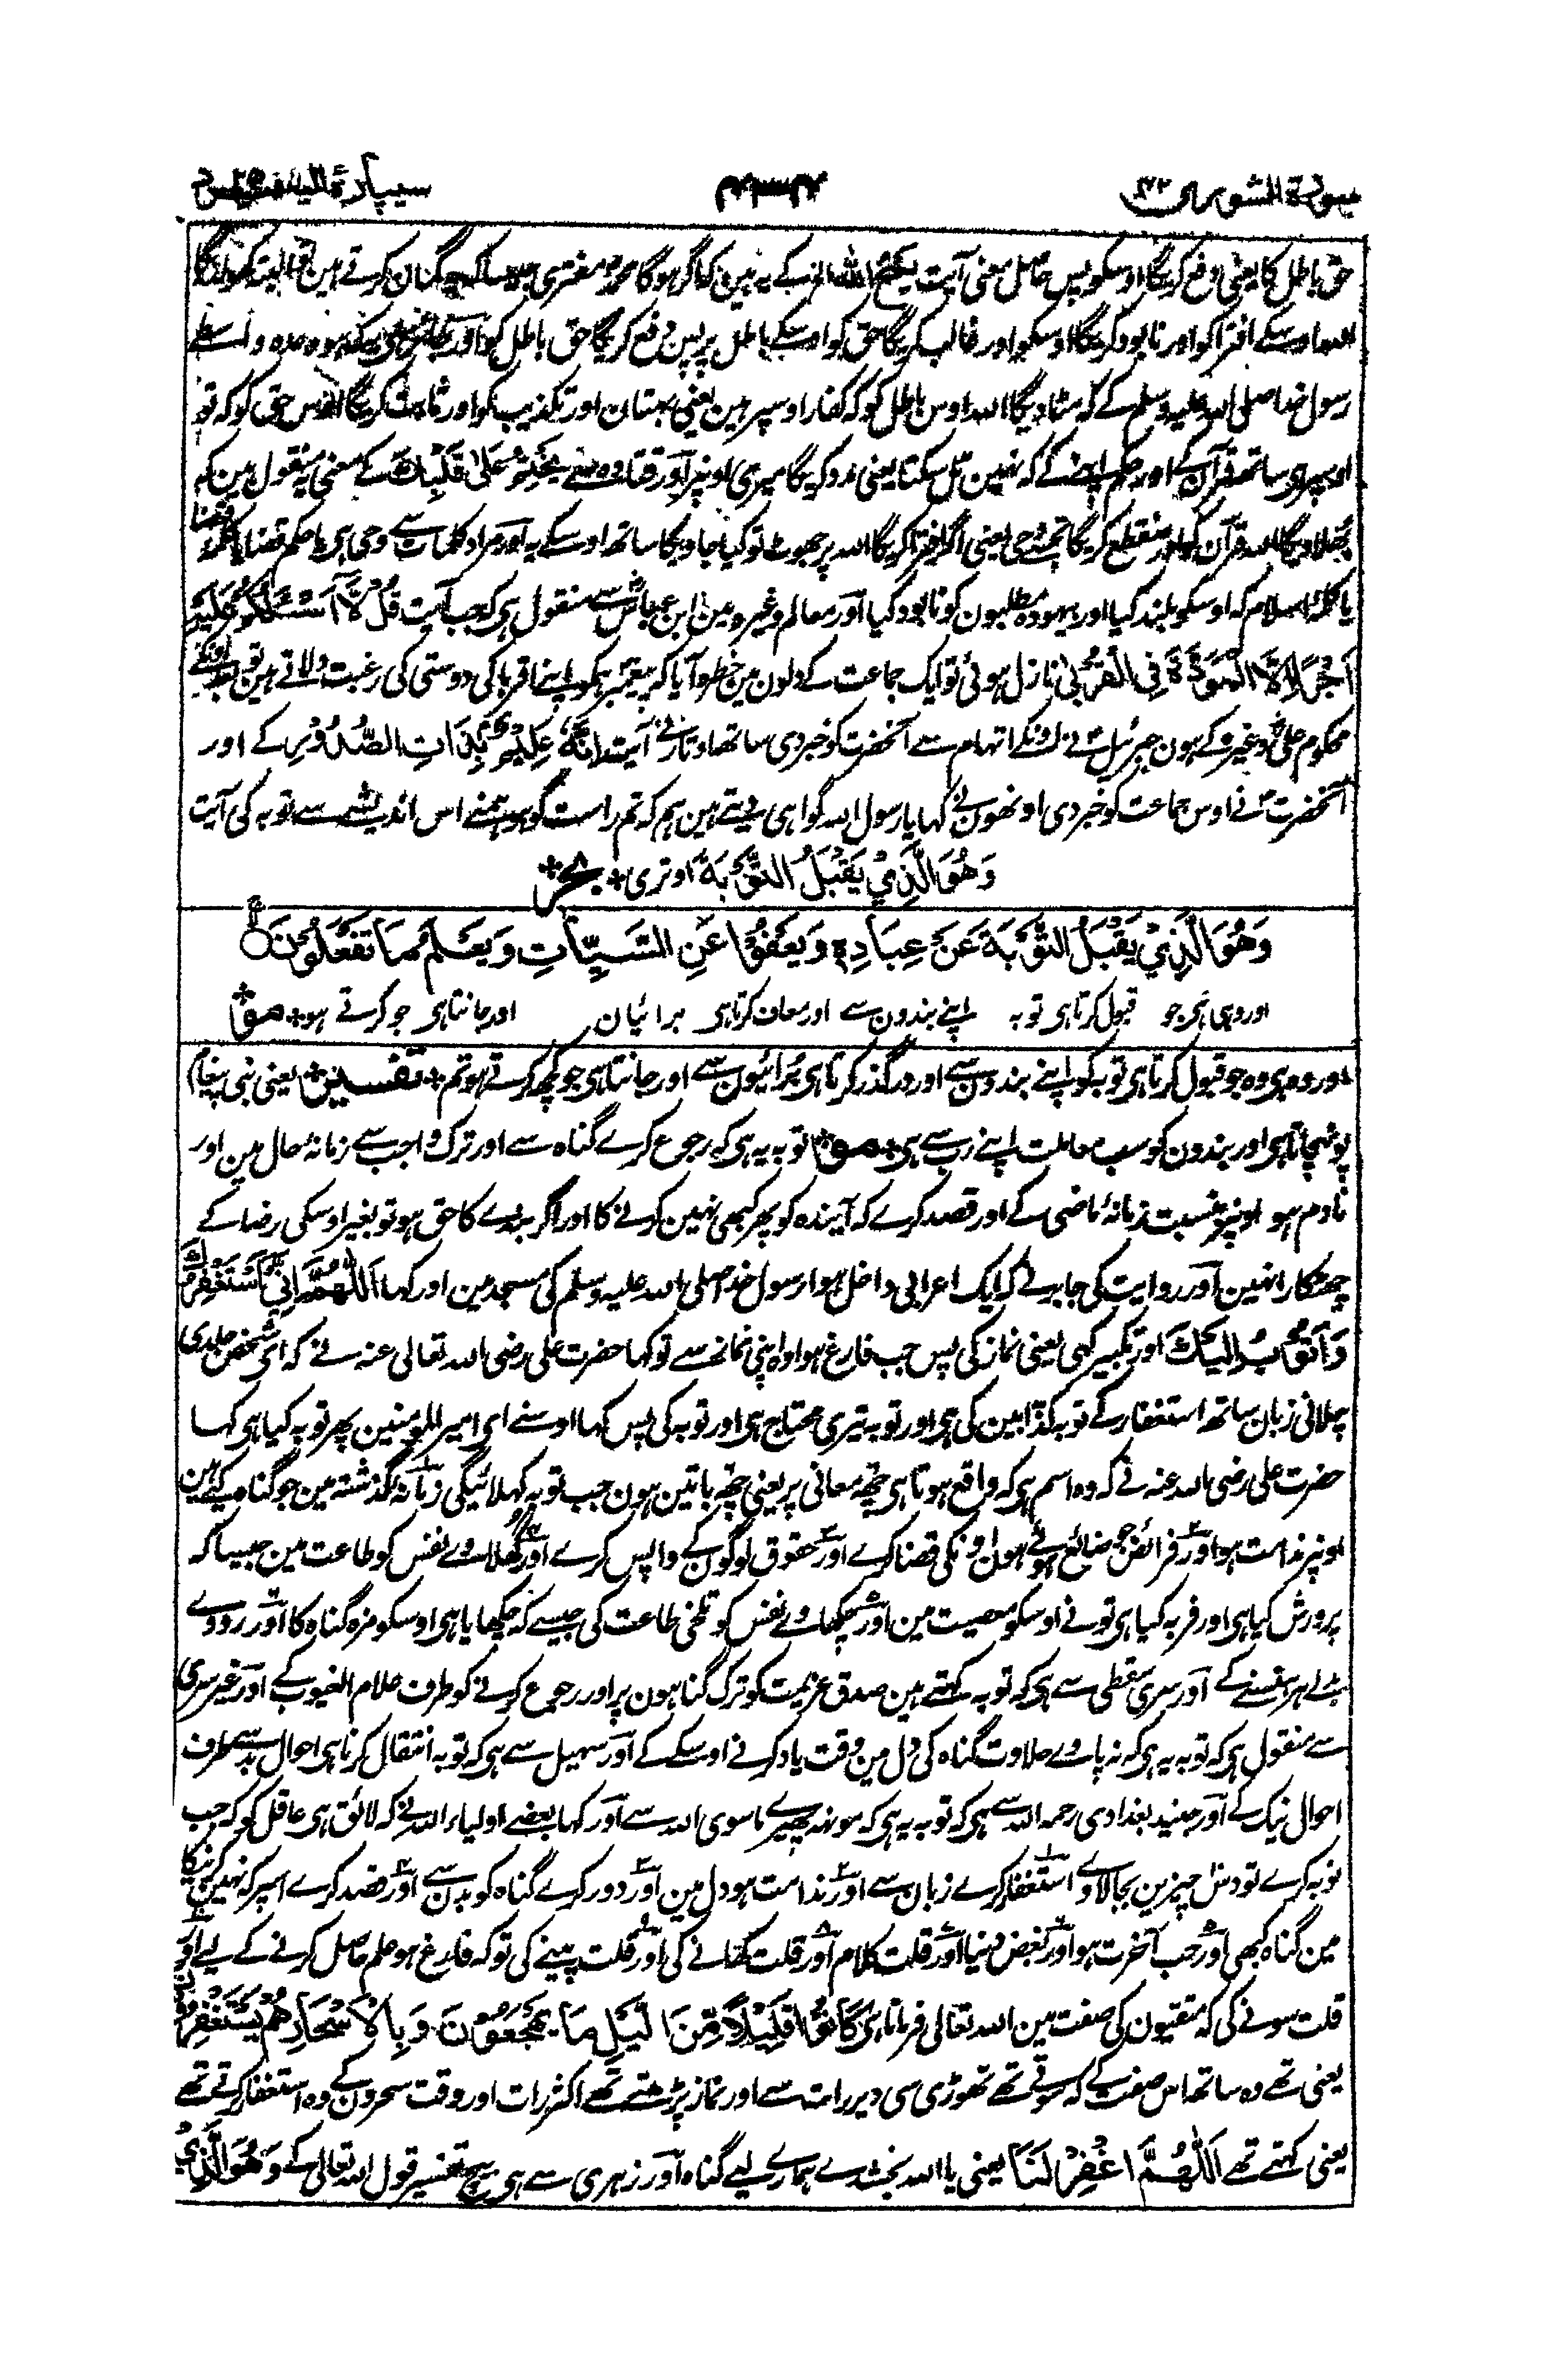 سورة الشورى ۴۲
سیپارۂ الیہ یرد
حق باطل کا یعنی دفع کریگا اوسکو پس حاصل معنی آیت یختم اللہ الخ کے یہ ہین کہ اگر ہوگا محمد مفتری جیسا کہ یہ گمان کرتے ہین تو البتہ کھو دیگا
اللہ اوسکے افترا کو اور نابود کریگا اوسکو اور غالب کریگا حق کو اوسکے باطل پر پس دفع کریگا حق باطل کو اور وعدہ واسطے
رسول خدا صلی اللہ علیہ وسلم کے کہ مٹا دیگا اللہ اوس باطل کو کہ کفار اوسپر ہین یعنی بہتان اور تکذیب کو اور ثابت کریگا اوس حق کو کہ تو
اوسپر ہی ساتھ قرآن کے اور حکم اپنے کے کہ نہین ٹل سکتا یعنی مدد کریگا میری اونپر اور قتادہ سے یَخْتِمْ عَلٰی قَلْبِكَ کے معنی یہ منقول ہین کہ
بھلا دیگا اللہ قرآن کو اور منقطع کریگا تجھسے وحی یعنی اگر افترا کریگا اللہ پر جھوٹ تو کیا جاویگا ساتھ اوسکے یہ اور مراد کلمات سے وحی ہی یا حکم قضا
یا کلمۂ اسلام کہ اوسکو بلند کیا اور بیہودہ مطلبون کو نابود کیا اور معالم وغیرہ مین ابن عباس سے منقول ہی کہ جب آیت قُلْ لَّآ اَسْـَٔلُكُمْ عَلَیْهِ
اَجْرًا اِلَّا الْمَوَدَّةَ فِی الْقُرْبٰی نازل ہوئی تو ایک جماعت کے دلون مین خطرہ آیا کہ پیغمبر ہمکو اپنے اقربا کی دوستی کی رغبت دلاتے ہین تو بعد اونکے
محکوم علی وغیرہ کے ہون جبرئیل نے اونکے اتہام سے آنحضرت کو خبر دی ساتھ اوتارنے آیت اِنَّهٗ عَلِیْمٌ بِذَاتِ الصُّدُوْرِ کے اور
آنحضرت نے اوس جماعت کو خبر دی اونھون نے کہا یا رسول اللہ گواہی دیتے ہین ہم کہ تم راست گو ہو ہمنے اس اندیشے سے توبہ کی آیت
وَهُوَ الَّذِیْ یَقْبَلُ التَّوْبَةَ اوتری + بحر +
وَهُوَ الَّذِیْ یَقْبَلُ التَّوْبَةَ عَنْ عِبَادِهٖ وَیَعْفُوْا عَنِ السَّیِّاٰتِ وَیَعْلَمُ مَا تَفْعَلُوْنَ
اور وہی ہی جو قبول کرتا ہی توبہ اپنے بندون سے اور معاف کرتا ہی برائیان اور جانتا ہی جو کرتے ہو + مو +
اور وہ ہی وہ جو قبول کرتا ہی توبہ کو اپنے بندون سے اور درگذر کرتا ہی برائیون سے اور جانتا ہی جو کچھ کرتے ہو تم + تفسیر + یعنی نبی پیغام
پونہچاتا ہی اور بندون کو سب معاملت اپنے رب سے ہی + مو + توبہ یہ ہی کہ رجوع کرے گناہ سے اور ترک واجب سے زمانۂ حال مین اور
نادم ہو اونپر بنسبت زمانۂ ماضی کے اور قصد کرے کہ آیندہ کو پھر کبھی نہین کرنے کا اور اگر بندے کا حق ہو تو بغیر اوسکی رضا کے
چھٹکارا نہین اور روایت کی جابر نے کہ ایک اعرابی داخل ہوا رسول خدا صلی اللہ علیہ وسلم کی مسجد مین اور کہا اَللّٰهُمَّ اِنِّیْ اَسْتَغْفِرُكَ
وَاَتُوْبُ اِلَیْكَ اور تکبیر کہی یعنی نماز کی پس جب فارغ ہوا وہ اپنی نماز سے تو کہا حضرت علی رضی اللہ تعالی عنہ نے کہ ای شخص جلدی
چلانی زبان ساتھ استغفار کے توبہ کذابین کی ہی اور توبہ تیری محتاج ہی اور توبہ کی پس کہا اوسنے ای امیر المومنین پھر توبہ کیا ہی کہا
حضرت علی رضی اللہ عنہ نے کہ وہ اسم ہی کہ واقع ہوتا ہی چھ معانی پر یعنی چھ باتین ہون جب توبہ کہلائیگی زمانۂ گذشتہ مین جو گناہ کیے ہین
اونپر ندامت ہو اور فرائض جو ضائع ہوئے ہون اونکی قضا کرے اور حقوق لوگون کے واپس کرے اور گھلاوے نفس کو طاعت مین جیسا کہ
پرورش کیا ہی اور فربہ کیا ہی تونے اوسکو معصیت مین اور چکھاوے نفس کو تلخی طاعت کی جیسے کہ چکھایا ہی اوسکو مزہ گناہ کا اور رووے
بدلے ہر ہنسنے کے اور سری سقطی سے ہی کہ توبہ کہتے ہین صدق عزیمت کو ترک گناہون پر اور رجوع کرنے کو طرف علام الغیوب کے اور غیر سری
سے منقول ہی کہ توبہ یہ ہی کہ نہ پاوے حلاوت گناہ کی دل مین وقت یاد کرنے اوسکے کے اور سہیل سے ہی کہ توبہ انتقال کرنا ہی احوال بد سے طرف
احوال نیک کے اور جنید بغدادی رحمہ اللہ سے ہی کہ توبہ یہ ہی کہ مونہہ پھیرے ماسوی اللہ سے اور کہا بعضے اولیاء اللہ نے کہ لائق ہی عاقل کو کہ جب
توبہ کرے تو دس چیزین بجالاوے استغفار کرے زبان سے اور ندامت ہو دل مین اور دور کرے گناہ کو بدن سے اور قصد کرے اسپر کہ نہین کرنیکا
مین گناہ کبھی اور حب آخرت ہو اور بغض دنیا اور قلت کلام اور قلت کھانے کی اور قلت پینے کی تو کہ فارغ ہو علم حاصل کرنے کے لیے اور
قلت سونے کی کہ متقیون کی صفت مین اللہ تعالی فرماتا ہی كَانُوْا قَلِیْلًا مِّنَ الَّیْلِ مَا یَهْجَعُوْنَ وَبِالْاَسْحَارِ هُمْ یَسْتَغْفِرُوْنَ
یعنی تھے وہ ساتھ اس صفت کے کہ سوتے تھے تھوڑی سی دیر رات سے اور نماز پڑھتے تھے اکثر رات اور وقت سحرون کے وہ استغفار کرتے تھے
یعنی کہتے تھے اَللّٰهُمَّ اغْفِرْ لَنَا یعنی یا اللہ بخشدے ہمارے لیے گناہ اور زہری سے ہی بیچ تفسیر قول اللہ تعالی کے وَهُوَ الَّذِیْ